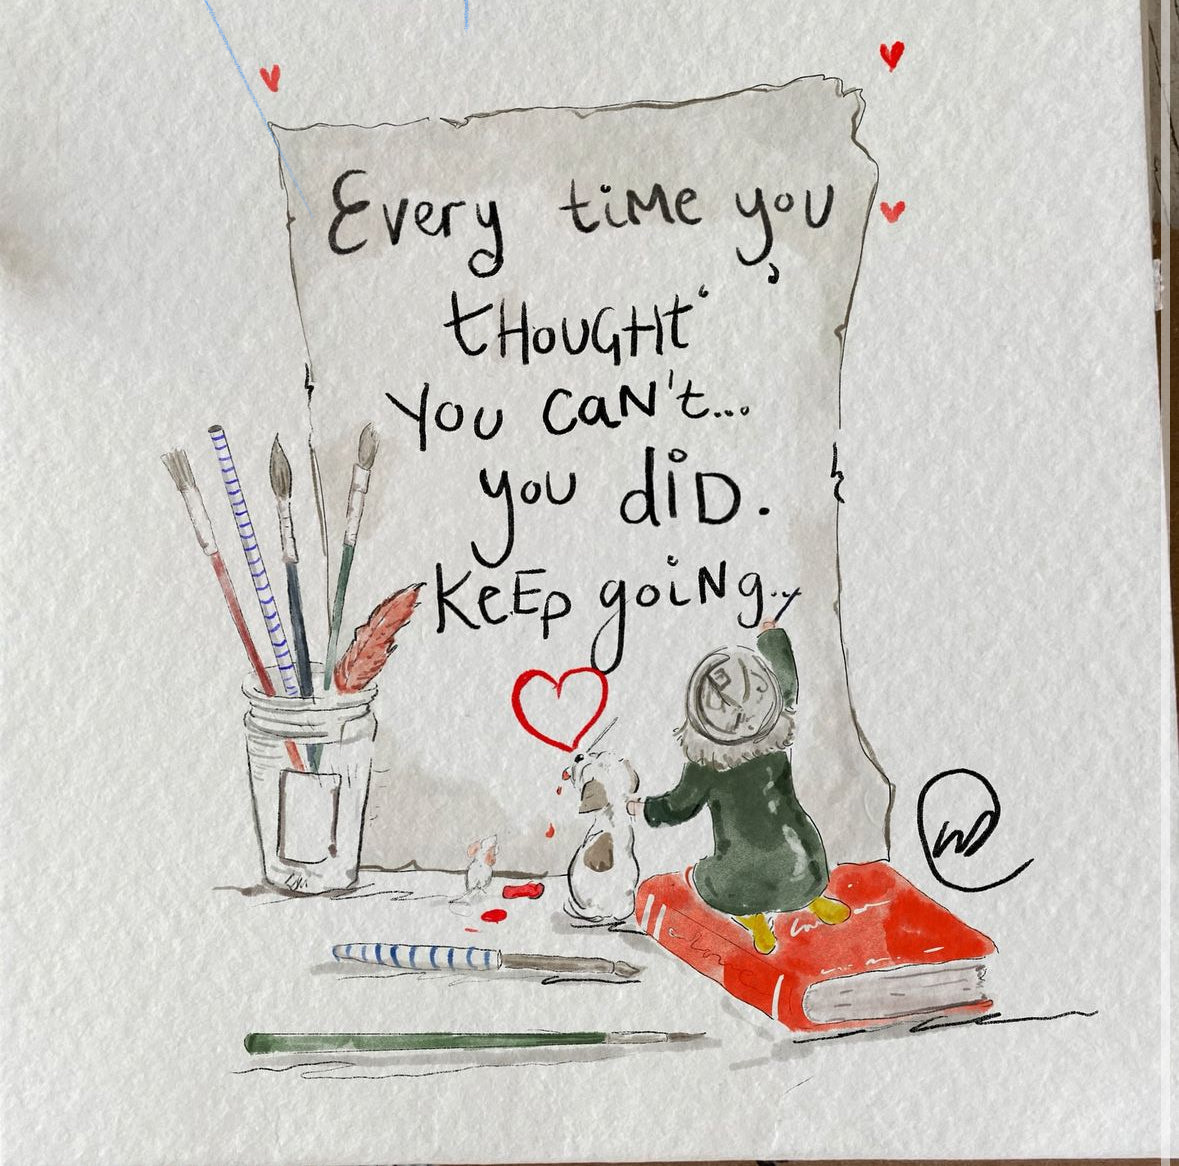 Every time you
tHouGHt
You caN't...
you diD.
KeEp goiNg..